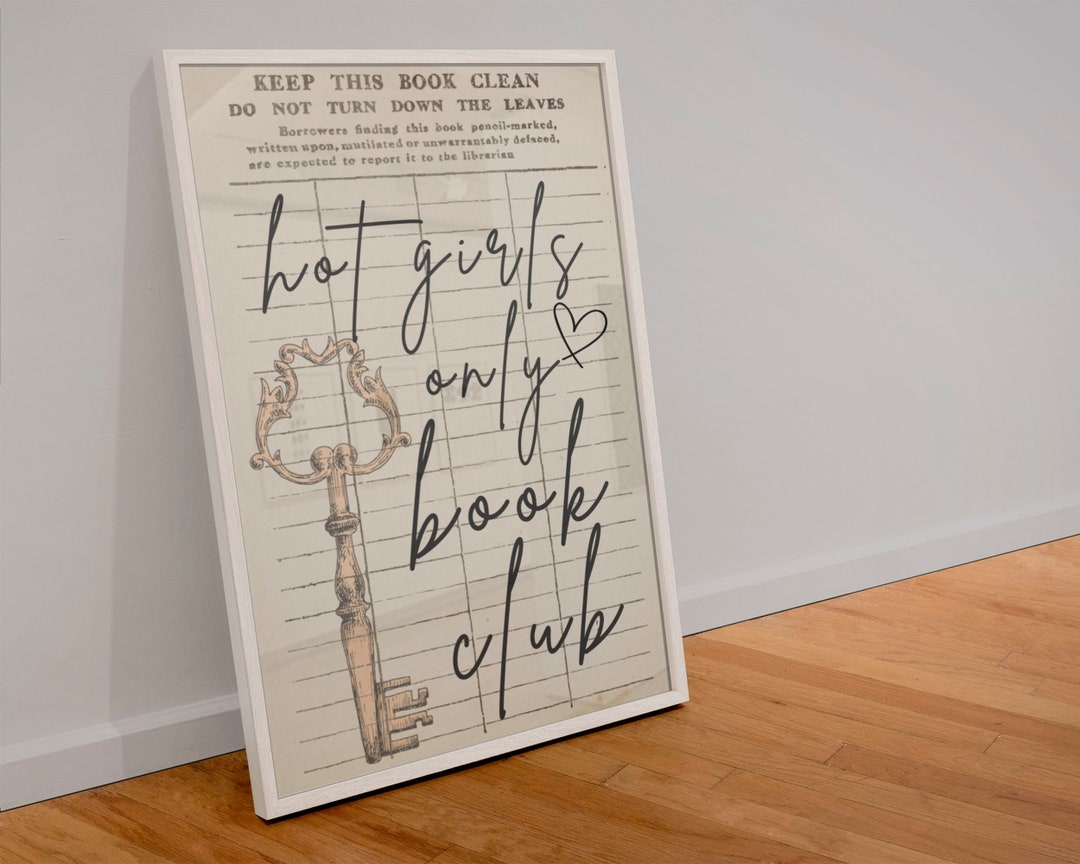 KEEP THIS BOOK CLEAN
DO NOT TURN DOWN THE LEAVES
Borrowers finding this book pencil-marked,
written upon, mutilated or unwarrantably defaced,
are expected to report it to the librarian
hot girls
only
book
club